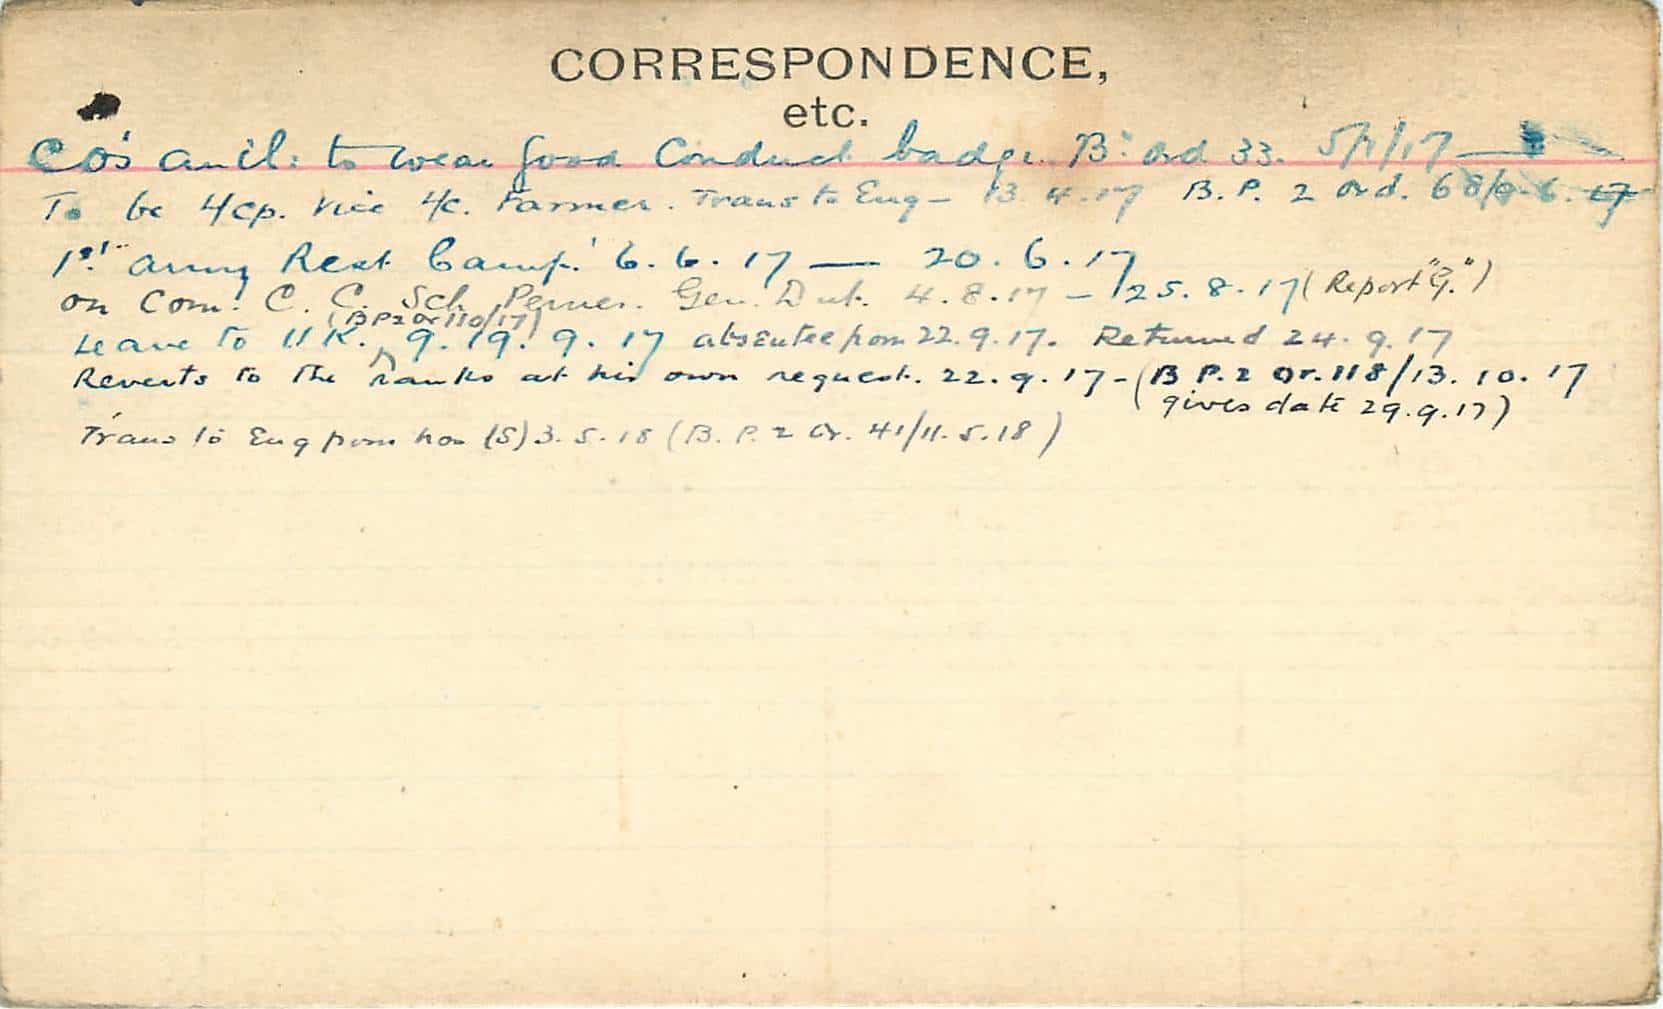 CORRESPONDENCE,
etc.
CO's auth: to wear Good Conduct badge. Bn Ord 33. 5/7/17 —
To be L/Cp. vice L/C. Farmer. Trans to Eng — 13.4.17 B.P. 2 Ord. 68/9.6.17
1st Army Rest Camp. 6.6.17 — 20.6.17
on Com: C. C. Sch Pernes. Gen. Dut. 4.8.17 — 25.8.17 (Report "G.")
(BP2 Or 110/17)
Leave to UK. 9.9.17 absentee from 22.9.17. Returned 24.9.17
Reverts to the ranks at his own request. 22.9.17 - (B P.2 Or. 118/13.10.17
gives date 29.9.17)
Trans to Eng from hos (S) 3.5.18 (B.P.2 Or. 41/11.5.18)